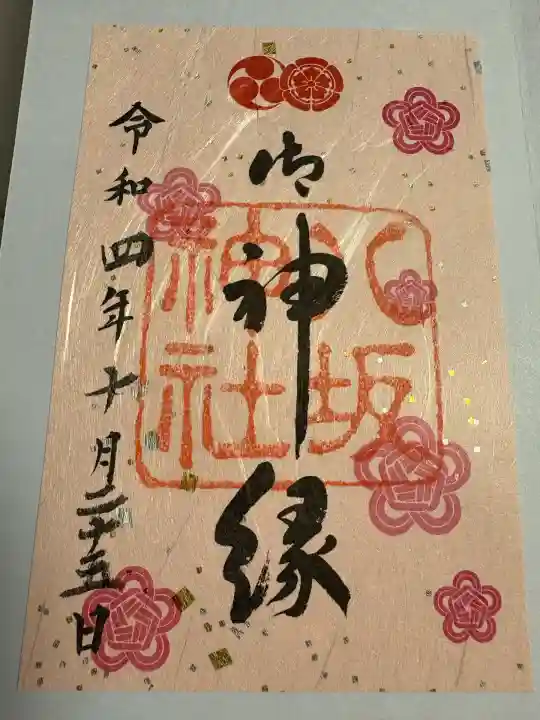 御神縁
八坂
神社
令和四年十月二十五日